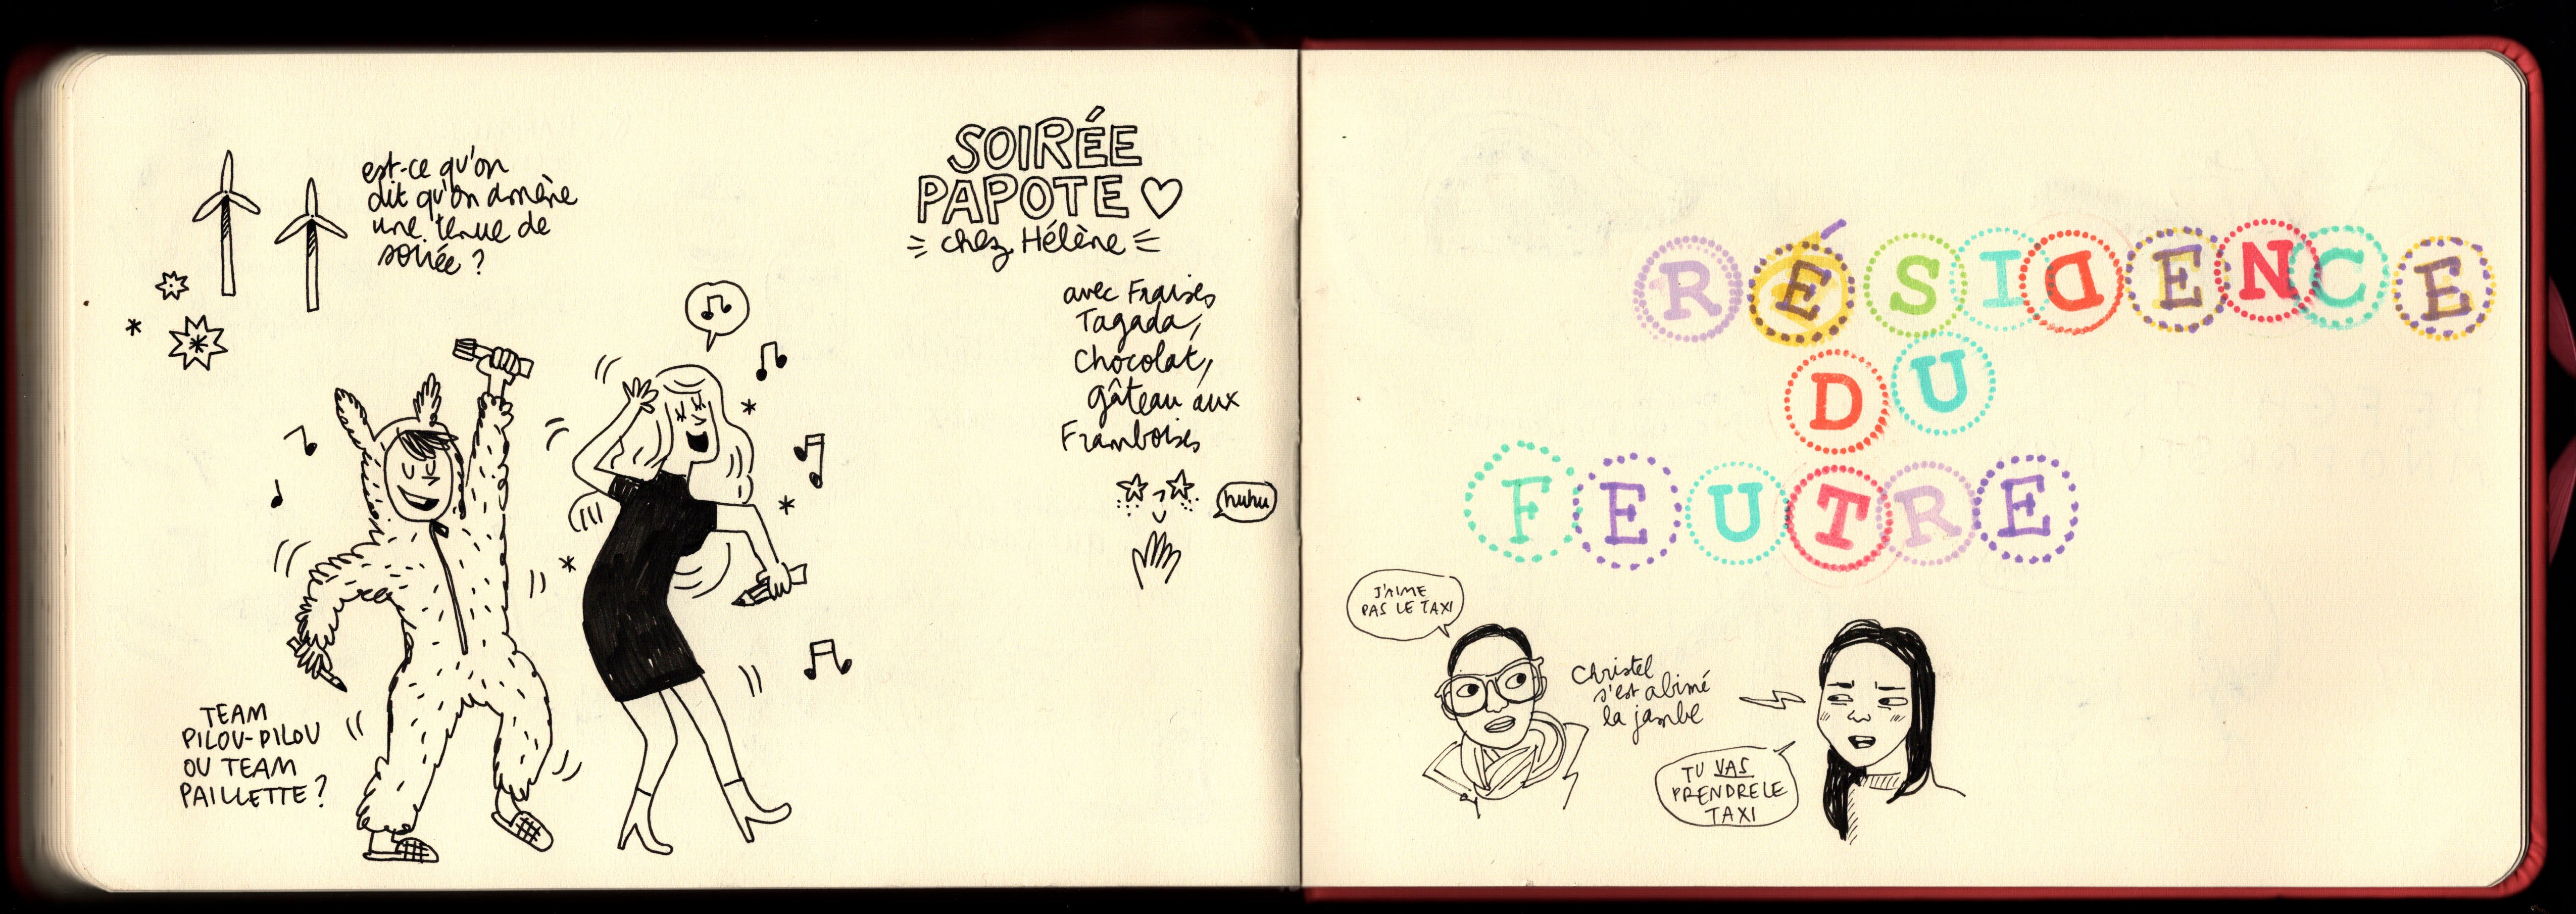 est-ce qu'on
dit qu'on amène
une tenue de
soirée ?
SOIRÉE
PAPOTE
chez Hélène
avec Fraises
Tagada,
Chocolat,
gâteau aux
Framboises
huhu
TEAM
PILOU-PILOU
OU TEAM
PAILLETTE ?
RÉSIDENCE
DU
FEUTRE
J'AIME
PAS LE TAXI
Christel
s'est abimé
la jambe
TU VAS
PRENDRE LE
TAXI